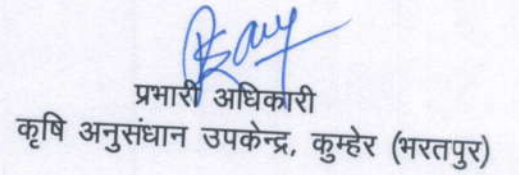 प्रभारी अधिकारी
कृषि अनुसंधान उपकेन्द्र, कुम्हेर (भरतपुर)